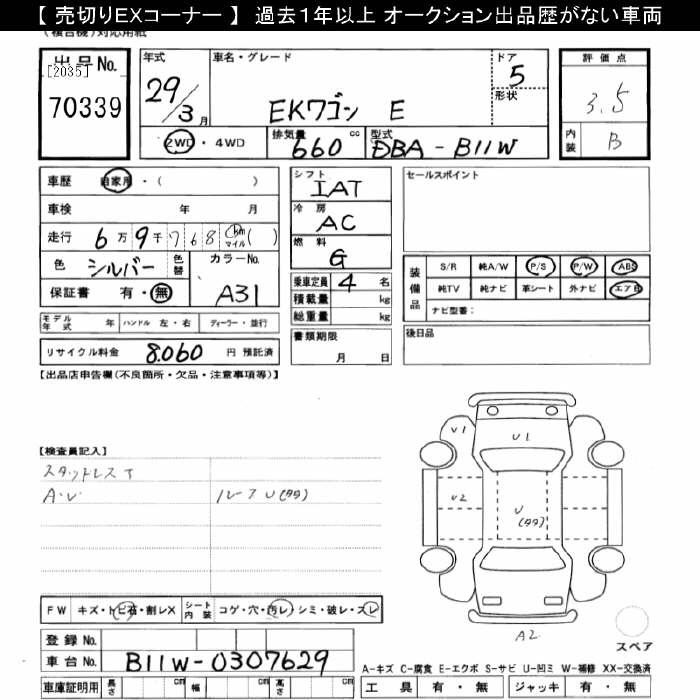 【 売切りEXコーナー 】 過去１年以上 オークション出品歴がない車両
(複合機)対応用紙
出品No.
[2035]
70339
年式
29/3月
車名・グレード
EKワゴン E
ドア
5
形状
2WD・4WD
排気量
660 cc
型式
DBA-B11W
評価点
3.5
内装
B
車歴 自家用・( )
車検 年 月
走行 6万9千768 km マイル ( )
色 シルバー 色替
カラーNo.
A31
保証書 有・無
モデル年式 年 ハンドル 左・右 ディーラー・並行
リサイクル料金 8,060 円 預託済
シフト
IAT
冷房
AC
燃料
G
乗車定員 4 名
積載量 kg
総重量 kg
書類期限
月 日
セールスポイント
装備品
S/R 純A/W P/S P/W ABS
純TV 純ナビ 革シート 外ナビ エアB
ナビ型番：
後日品
【出品店申告欄(不良箇所・欠品・注意事項等)】
【検査員記入】
スタットレスT
A・U
ルーフU(多々)
U1
U1
U2
U
(多々)
A2
スペア
FW キズ・トビ石・割レX シート内装 コゲ・穴・汚レ・シミ・破レ・スレ
登録No.
車台No. B11W-0307629
車庫証明用 長さ cm 幅 cm 高さ cm
A-キズ C-腐食 E-エクボ S-サビ U-凹ミ W-補修 XX-交換済
工具 有・無 ジャッキ 有・無